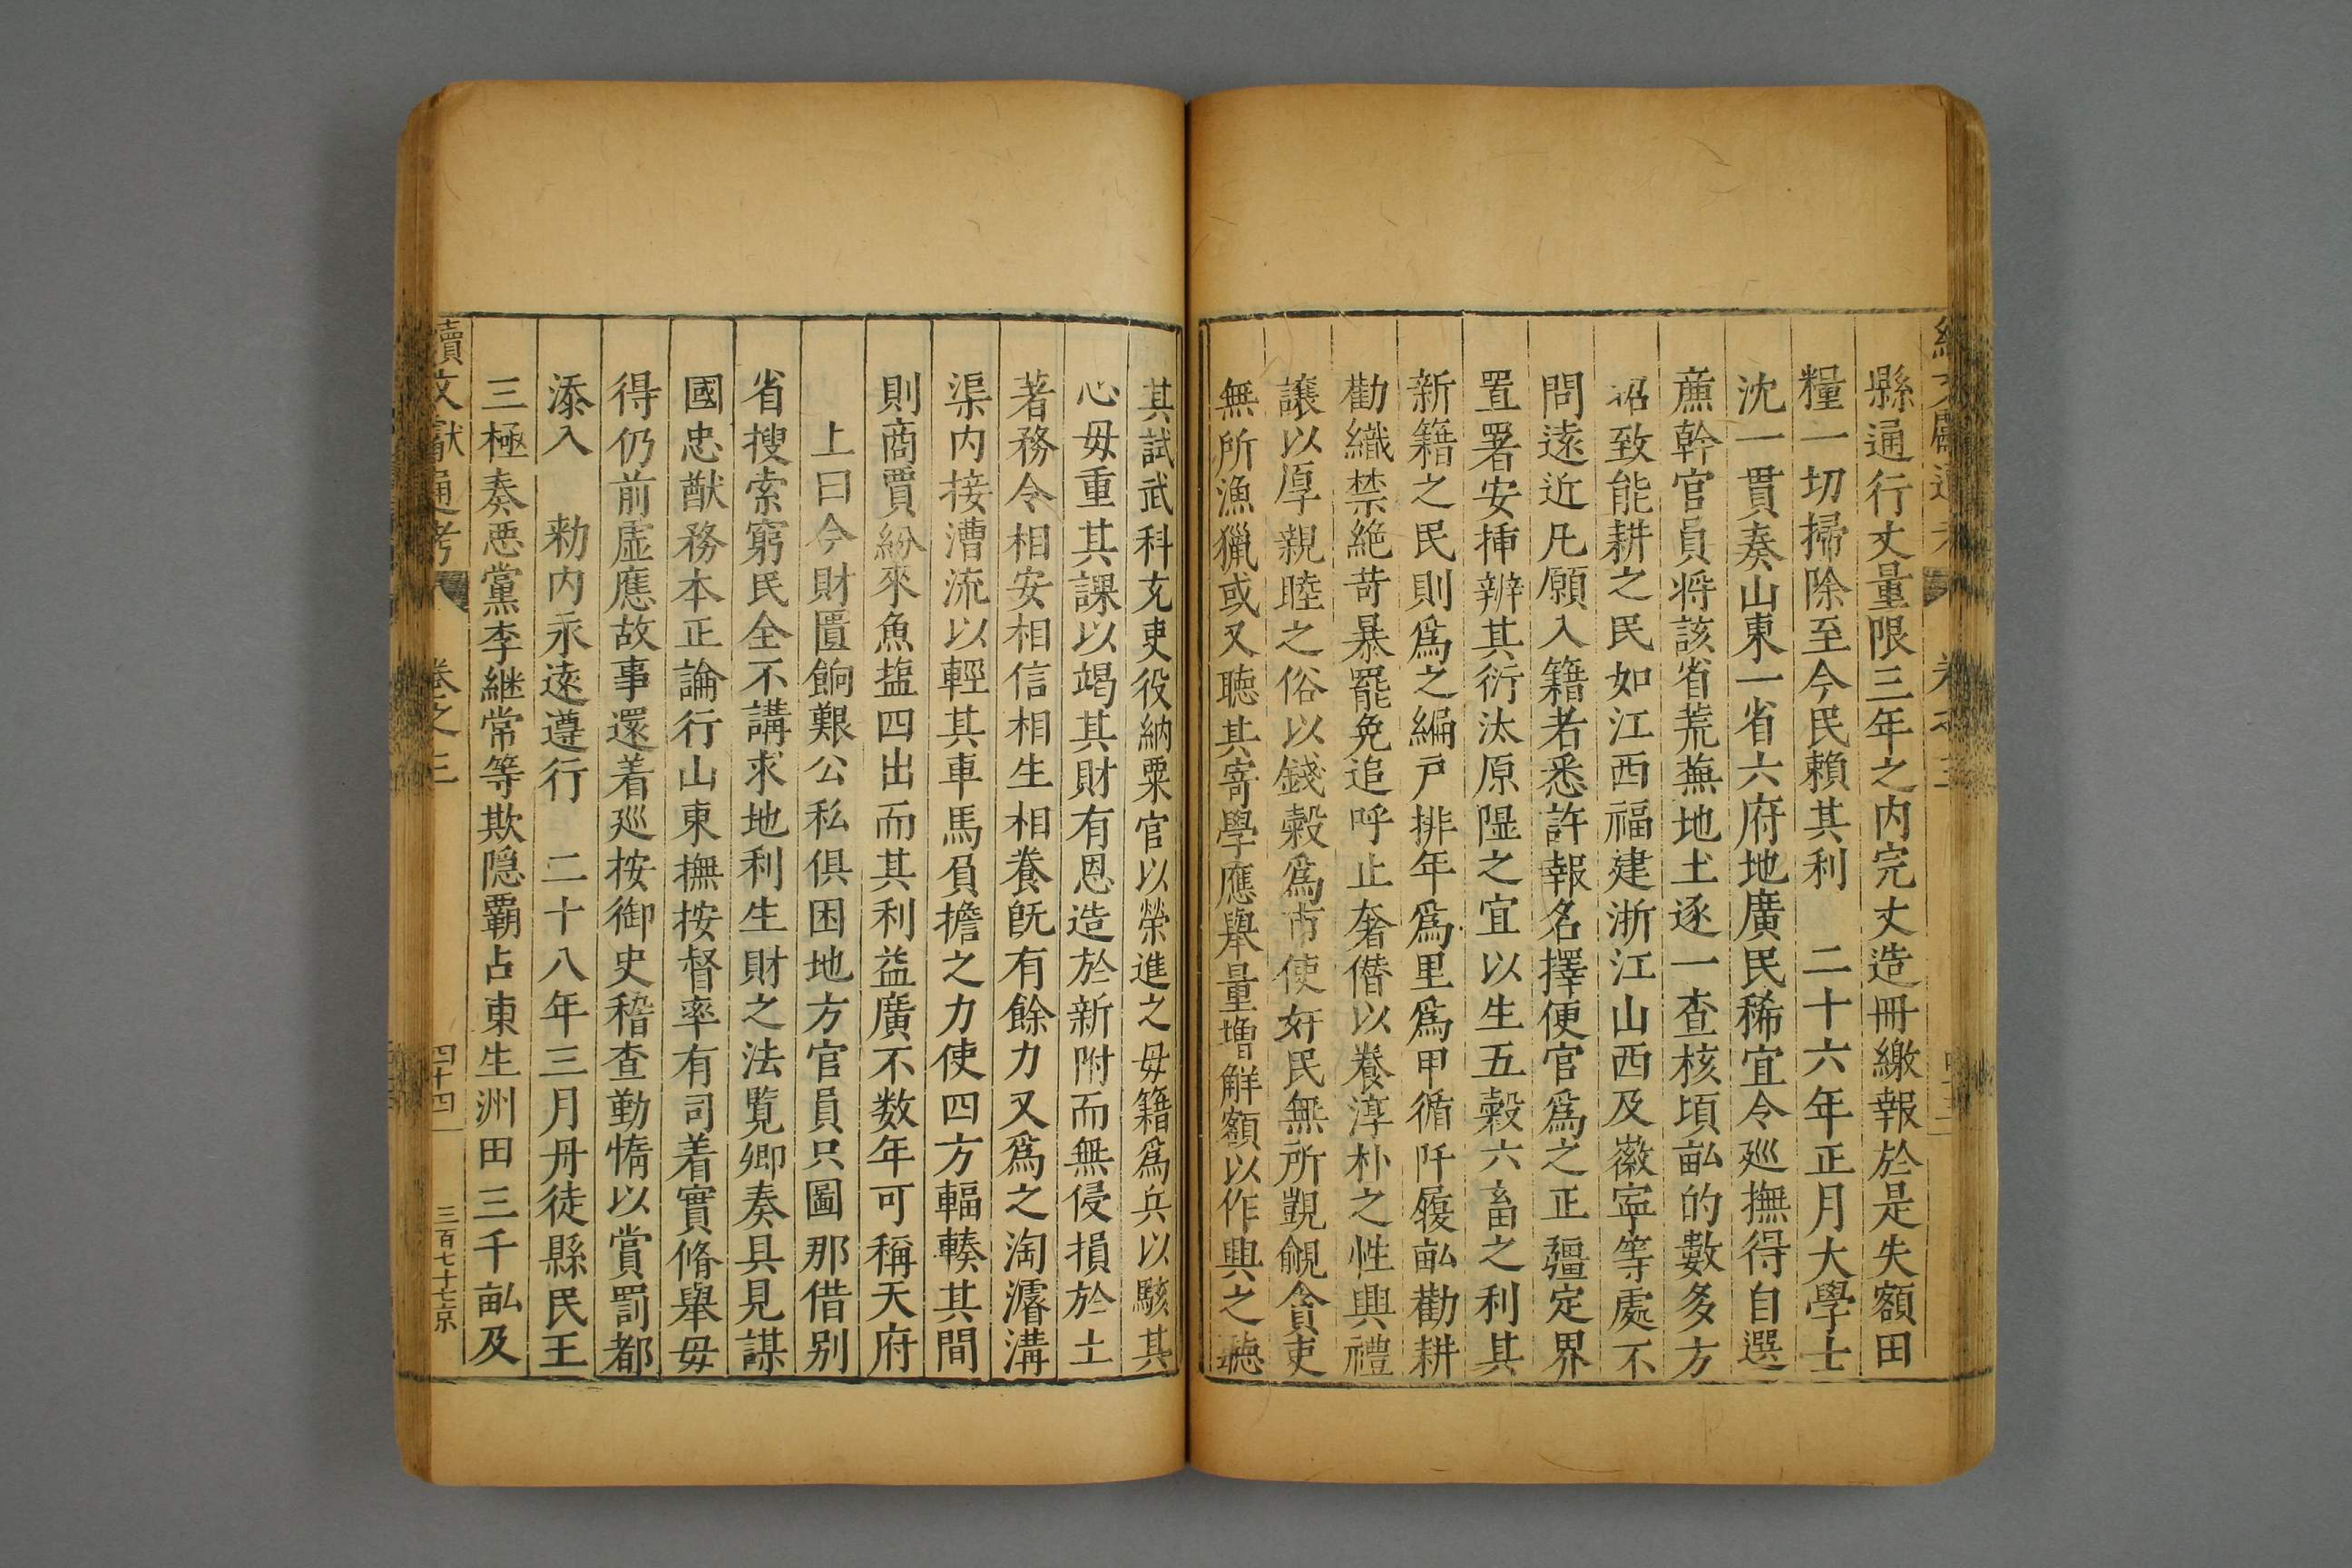 縣通行丈量限三年之内完丈造冊繳報於是失額田
糧一切掃除至今民賴其利　二十六年正月大學士
沈一貫奏山東一省六府地廣民稀宜令廵撫得自選
亷幹官員將該省荒蕪地土逐一查核頃畝的數多方
招致能耕之民如江西福建浙江山西及徽寧等處不
問遠近凡願入籍者悉許報名擇便官爲之正疆定界
置署安揷辨其衍沃原隰之宜以生五穀六畜之利其
新籍之民則爲之編戸排年爲里爲甲循阡履畝勸耕
勸織禁絶苛暴罷免追呼止奢僭以養淳朴之性興禮
讓以厚親睦之俗以錢榖爲市使奸民無所覬覦貪吏
無所漁獵或又聽其寄學應舉量增解額以作興之聽
其試武科充吏役納粟官以榮進之毋籍爲兵以駭其
心毋重其課以竭其財有恩造於新附而無侵損於土
著務令相安相信相生相養旣有餘力又爲之淘濬溝
渠内接漕流以輕其車馬負擔之力使四方輻輳其間
則商賈紛來魚塩四出而其利益廣不数年可稱天府
上曰今財匱餉艱公私俱困地方官員只圖那借别
省搜索窮民全不講求地利生財之法覧卿奏具見謀
國忠猷務本正論行山東撫按督率有司着實脩舉毋
得仍前虚應故事還着廵按御史稽查勤惰以賞罰都
添入　勅内永遠遵行　二十八年三月丹徒縣民王
三極奏惡黨李継常等欺隱覇占東生洲田三千畝及
續文獻通考　卷之三　四十四　三百七十七京